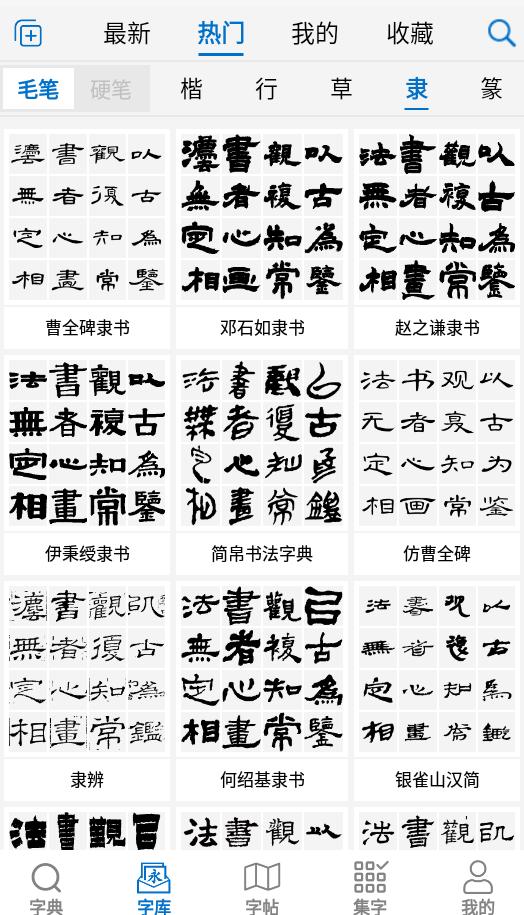 最新 热门 我的 收藏
毛笔 硬笔 楷 行 草 隶 篆
灋書觀㕥
無者復古
定心知為
相畫常鑒
曹全碑隶书
灋書觀㕥
無者複古
定心知為
相画常鑒
邓石如隶书
法書觀㕥
無者複古
定心知為
相畫常鑒
赵之谦隶书
法書觀㕥
無者複古
定心知為
相畫常鑒
伊秉绶隶书
法書觀
無者復古
心知
相畫常鑑
简帛书法字典
法书观以
无者复古
定心知为
相画常鉴
仿曹全碑
灋書觀
無者復古
定心知為
相畫常鑑
隶辨
法書觀
無者複古
定心知為
相畫常鑒
何绍基隶书
法書观以
無者復古
定心知為
相畫常
银雀山汉简
法書觀
法書觀以
法書觀
字典 字库 字帖 集字 我的